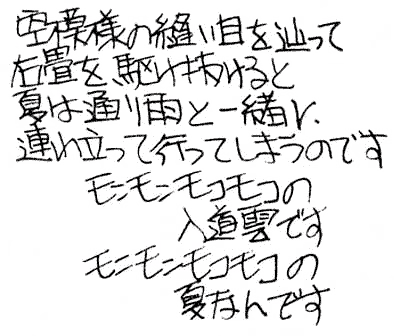 空模様の縫い目を辿って
石畳を駆け抜けると
夏は通り雨と一緒に
連れ立って行ってしまうのです
モンモンモコモコの
入道雲です
モンモンモコモコの
夏なんです